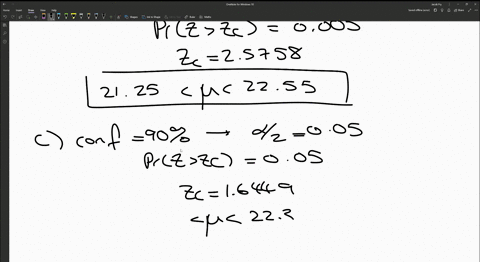 Pr(Z>Zc) = 0.005
Zc=2.5758
21.25 <μ< 22.55
c) conf =90% → α/2=0.05
Pr(Z>Zc) = 0.05
Zc=1.6449
<μ< 22.3